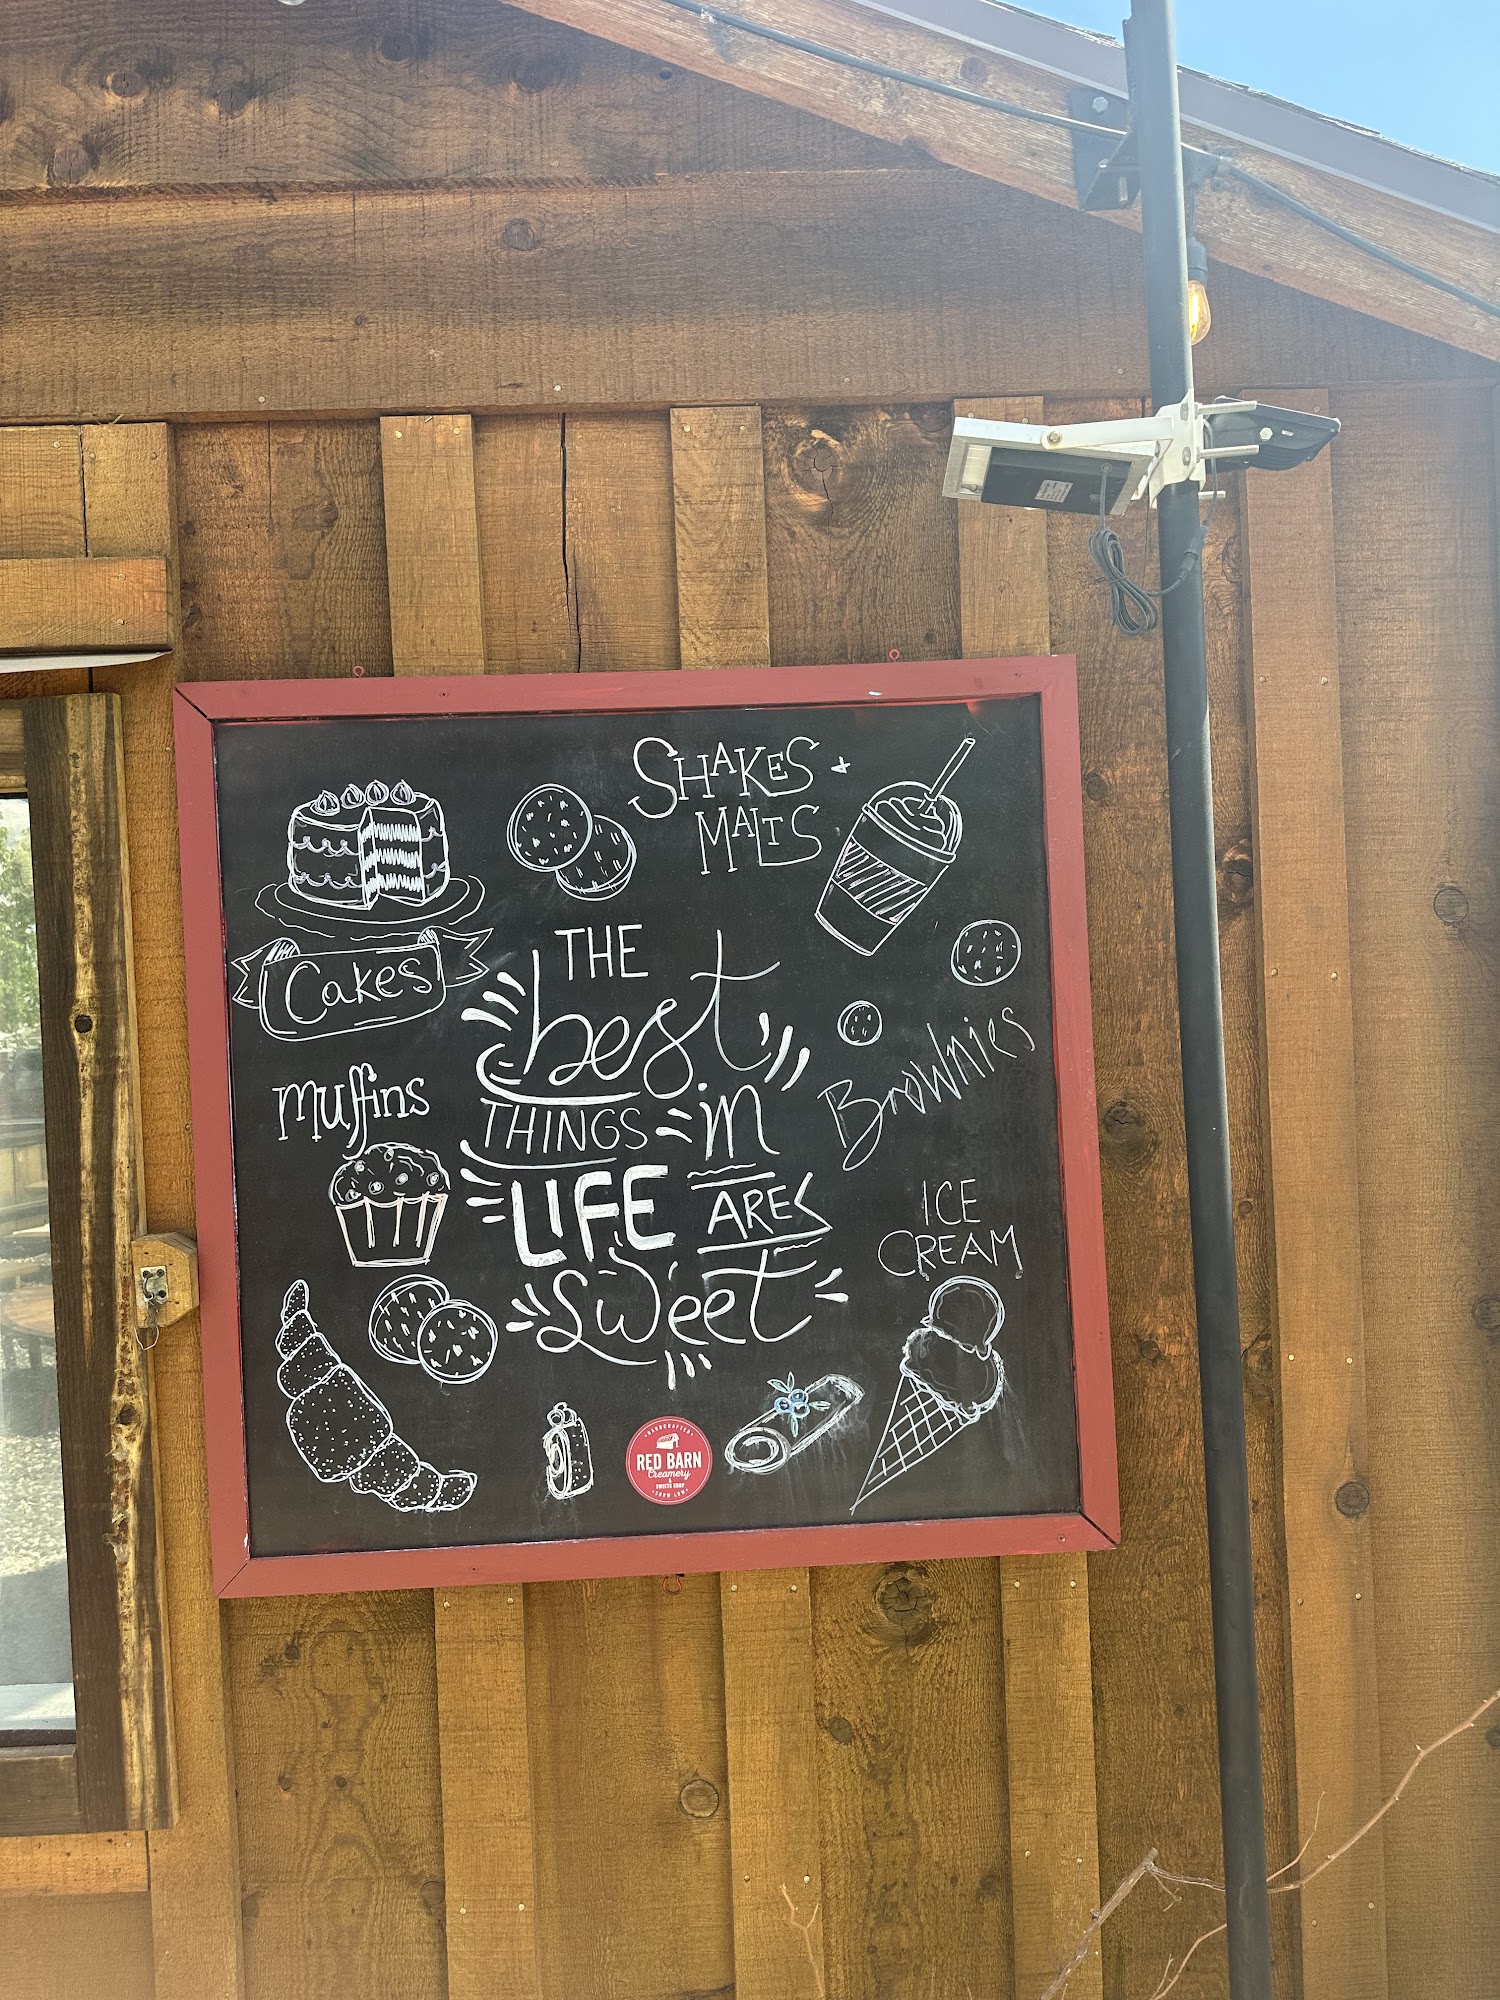 SHAKES +
MALTS
Cakes
THE
best
THINGS in
LIFE ARE
sweet
Muffins
Brownies
ICE
CREAM
HANDCRAFTED
RED BARN
Creamery
&
SWEETS SHOP
SHOW LOW